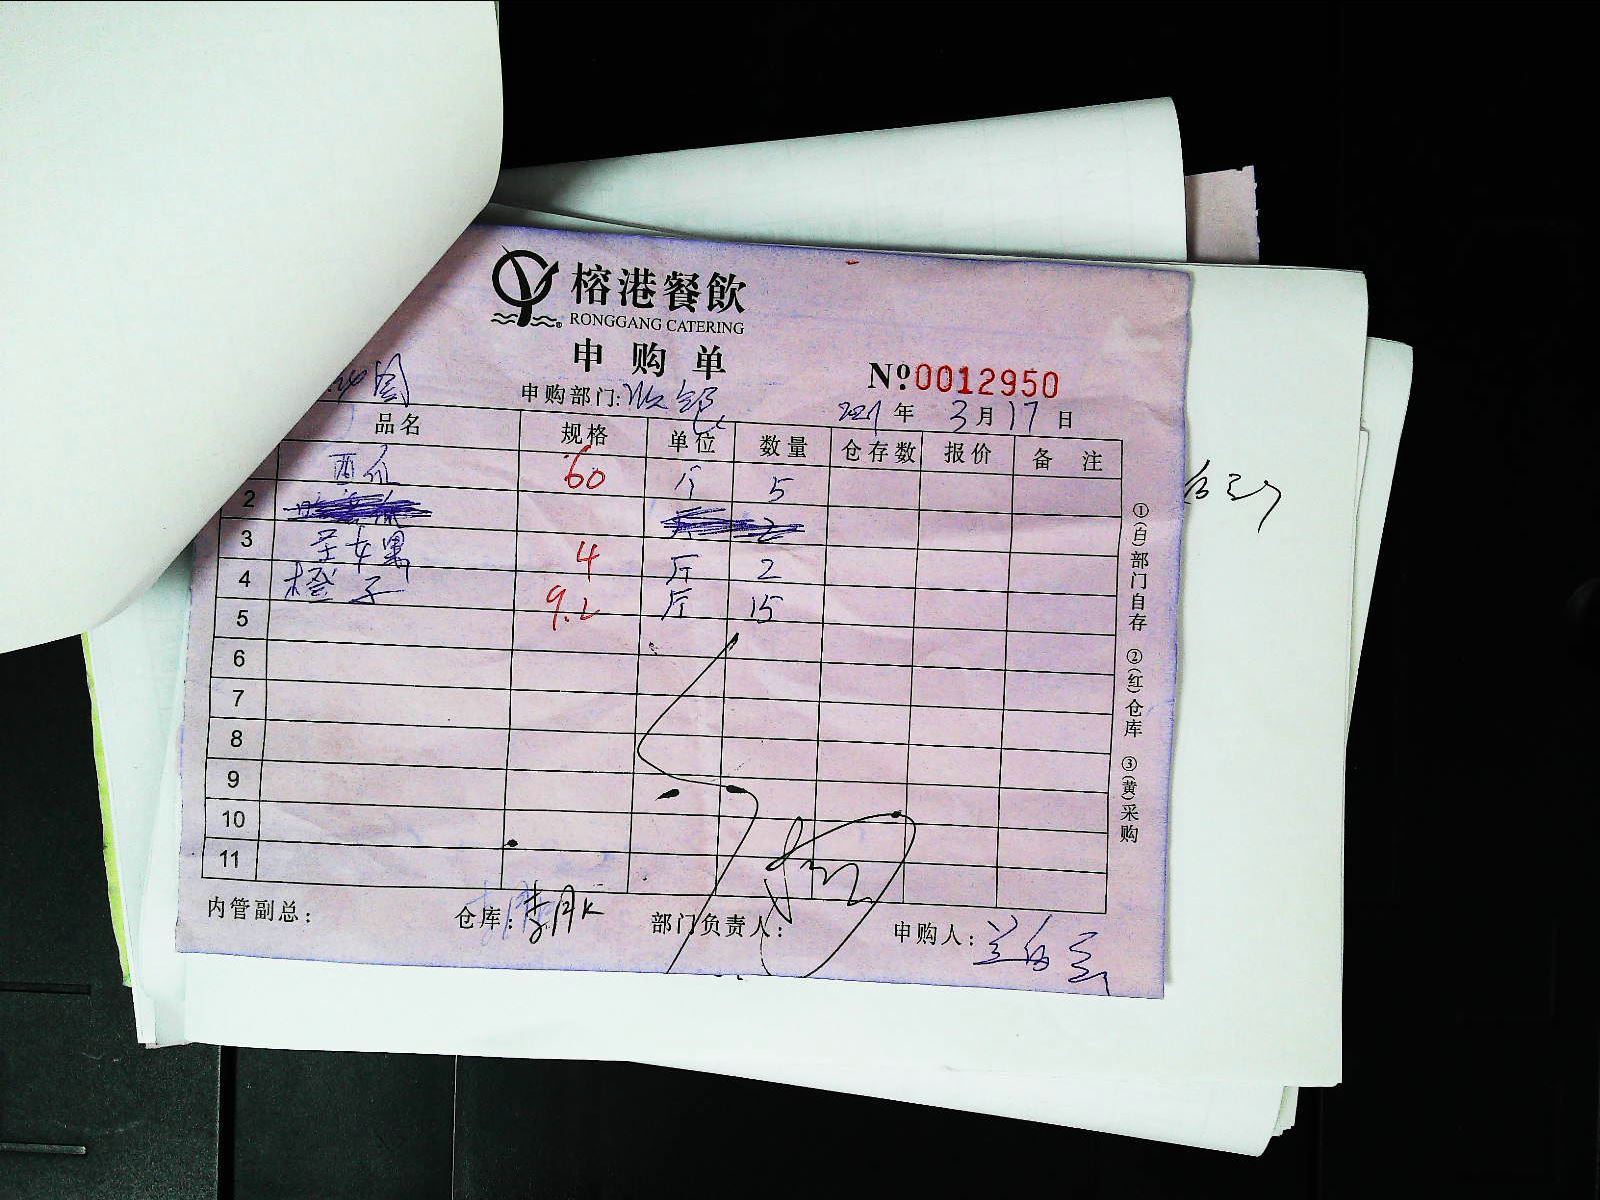 榕港餐飲
RONGGANG CATERING
申购单
№ 0012950
申购部门:
2021年3月17日
品名 规格 单位 数量 仓存数 报价 备注
西瓜 60 个 5
2
3 圣女果 4 斤 2
4 橙子 9.2 斤 15
5
6
7
8
9
10
11
内管副总: 仓库: 李月 部门负责人: 申购人:
①(白)部门自存 ②(红)仓库 ③(黄)采购